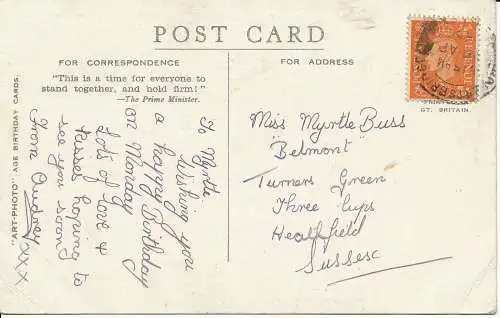 POST CARD
FOR CORRESPONDENCE
FOR ADDRESS
"This is a time for everyone to
stand together, and hold firm!"
—The Prime Minister.
"ART-PHOTO" AGE BIRTHDAY CARDS.
GT. BRITAIN.
To Myrtle
Wishing you
a happy Birthday
on Monday
Lots of love &
kisses hoping to
see you soon
From Audrey
xxx
Miss Myrtle Buss
"Belmont"
Turners Green
Three Cups
Heathfield
Sussesc